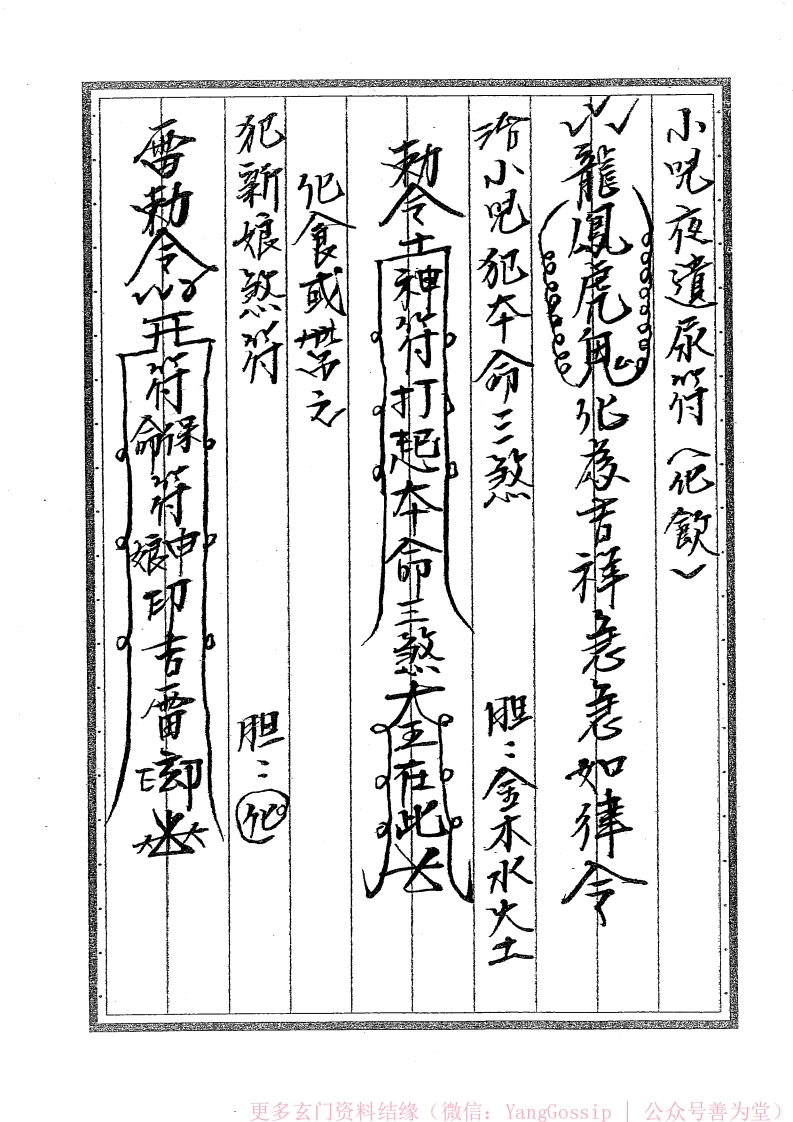 小児夜遺尿符（化飲）
龍鳳虎鬼化為吉祥急急如律令
治小児犯本命三煞 胆：金木水火土
勅令土神符打起本命三煞大王在此
化食或帶之
犯新娘煞符 胆：化
雷勅令
符保命符神娘印吉雷
更多玄门资料结缘（微信：YangGossip | 公众号善为堂）